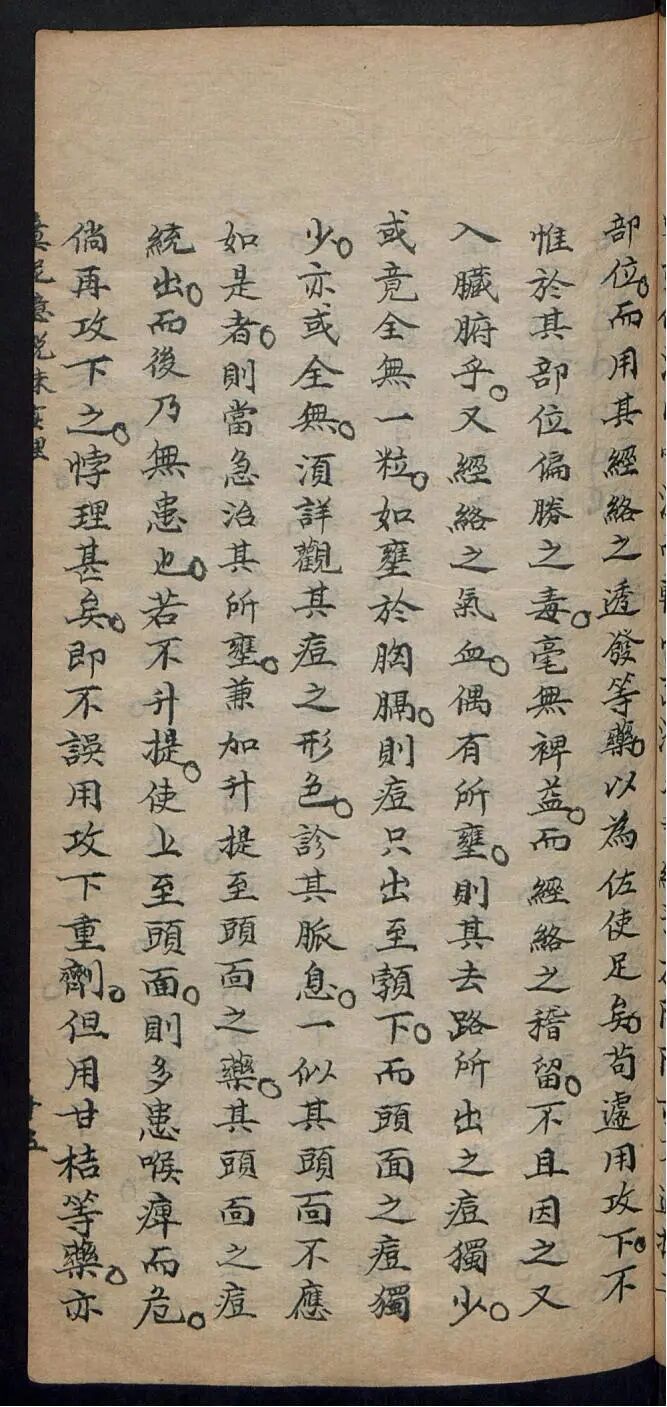 部位。而用其經絡之透發等藥。以為佐使足矣。苟遽用攻下。不
惟於其部位偏勝之毒。毫無裨益。而經絡之稽留。不且因之又
入臟腑乎。又經絡之氣血。偶有所壅。則其去路所出之痘獨少。
或竟全無一粒。如壅於胸膈。則痘只出至顙下。而頭面之痘獨
少。亦或全無。須詳觀其痘之形色。診其脈息。一似其頭面不應
如是者。則當急治其所壅。兼加升提至頭面之藥。其頭面之痘
統出。而後乃無患也。若不升提。使上至頭面。則多患喉痺而危。
倘再攻下之。悖理甚矣。即不誤用攻下重劑。但用甘桔等藥。亦